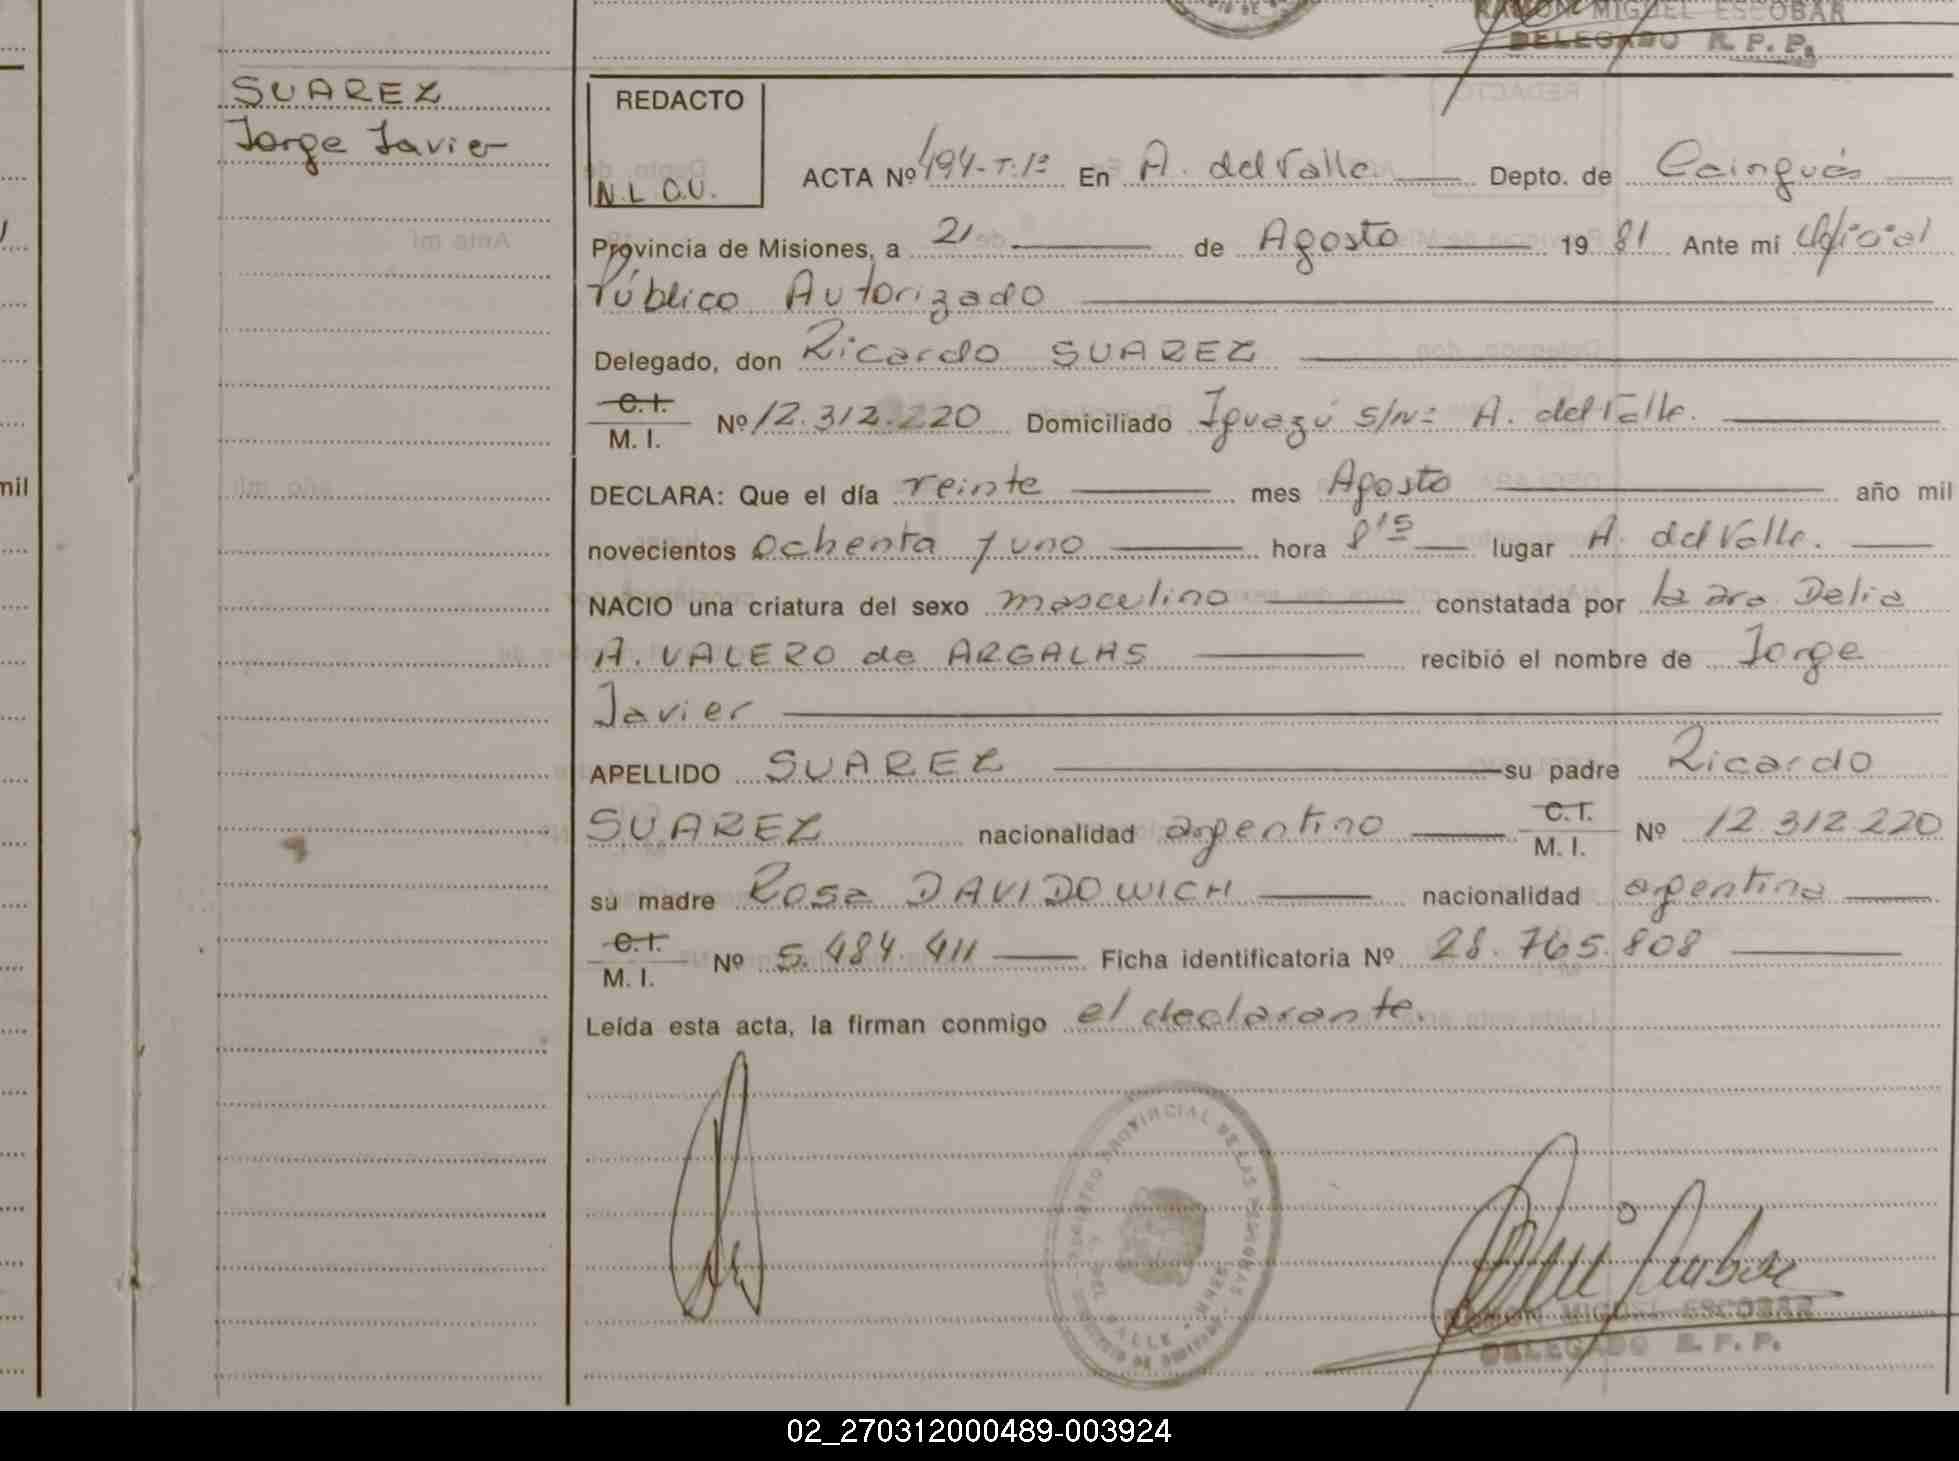 RAMON MIGUEL ESCOBAR
DELEGADO R. P. P.
SUAREZ
Jorge Javier
REDACTO
N.L.O.U.
ACTA Nº 494-T.1º En A. del Valle Depto. de Cainguás
Provincia de Misiones, a 21 de Agosto 19 81 Ante mí Oficial
Público Autorizado
Delegado, don Ricardo SUAREZ
C. I.
M. I. Nº 12.312.220 Domiciliado Iguazú s/nº A. del Valle.
DECLARA: Que el día veinte mes Agosto año mil
novecientos ochenta y uno hora 8 15 lugar A. del Valle.
NACIO una criatura del sexo masculino constatada por la Dra. Delia
A. VALERO de ARGALAS recibió el nombre de Jorge
Javier
APELLIDO SUAREZ su padre Ricardo
SUAREZ nacionalidad argentino C. I. M. I. Nº 12.312.220
su madre Rosa DAVIDOWICH nacionalidad argentina
C. I.
M. I. Nº 5.484.411 Ficha identificatoria Nº 28.765.808
Leída esta acta, la firman conmigo el declarante.
REGISTRO PROVINCIAL DE LAS PERSONAS
DEL VALLE
RAMON MIGUEL ESCOBAR
DELEGADO R. P. P.
mil
02_270312000489-003924